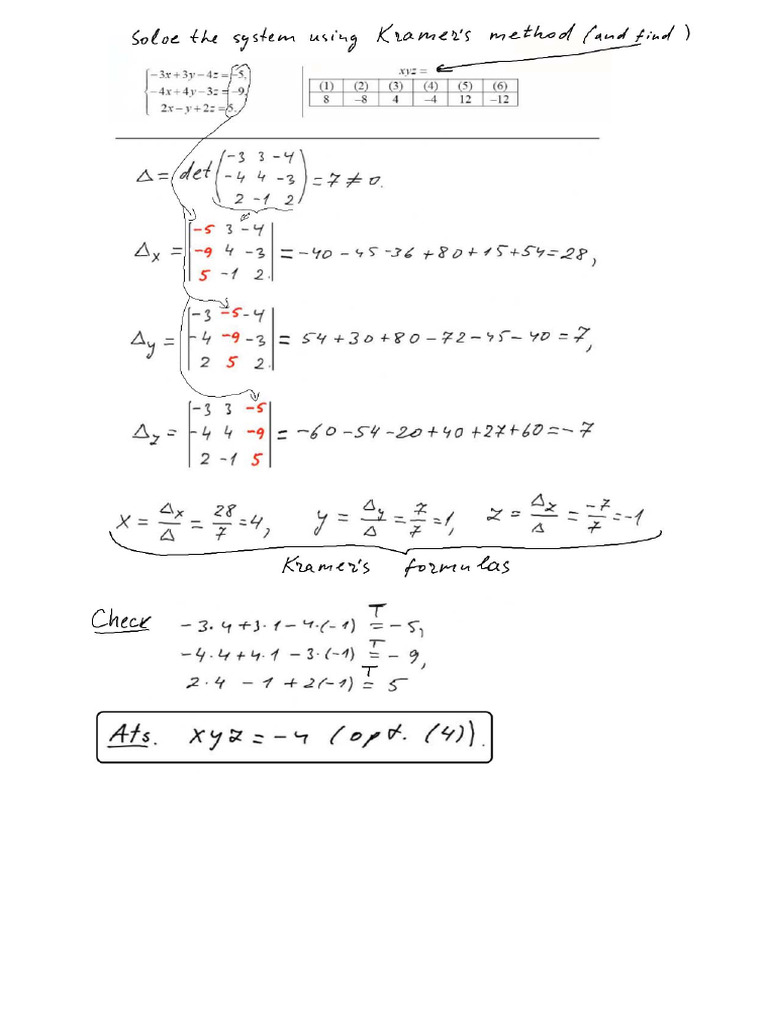 Soloe the system using Kramer's method (and find)
{ -3x + 3y - 4z = -5,
-4x + 4y - 3z = -9,
2x - y + 2z = 5.
xyz =
(1) (2) (3) (4) (5) (6)
8 -8 4 -4 12 -12
Δ = det ( -3 3 -4
-4 4 -3
2 -1 2 ) = 7 ≠ 0.
Δx = | -5 3 -4
-9 4 -3
5 -1 2. | = -40 - 45 - 36 + 80 + 15 + 54 = 28,
Δy = | -3 -5 -4
-4 -9 -3
2 5 2. | = 54 + 30 + 80 - 72 - 45 - 40 = 7,
Δz = | -3 3 -5
-4 4 -9
2 -1 5 | = -60 - 54 - 20 + 40 + 27 + 60 = -7
x = Δx/Δ = 28/7 = 4, y = Δy/Δ = 7/7 = 1, z = Δz/Δ = -7/7 = -1
Kramer's formulas
Check
-3·4 + 3·1 - 4·(-1) T= -5,
-4·4 + 4·1 - 3·(-1) T= -9,
2·4 - 1 + 2(-1) T= 5
Ats. xyz = -4 (opt. (4)).